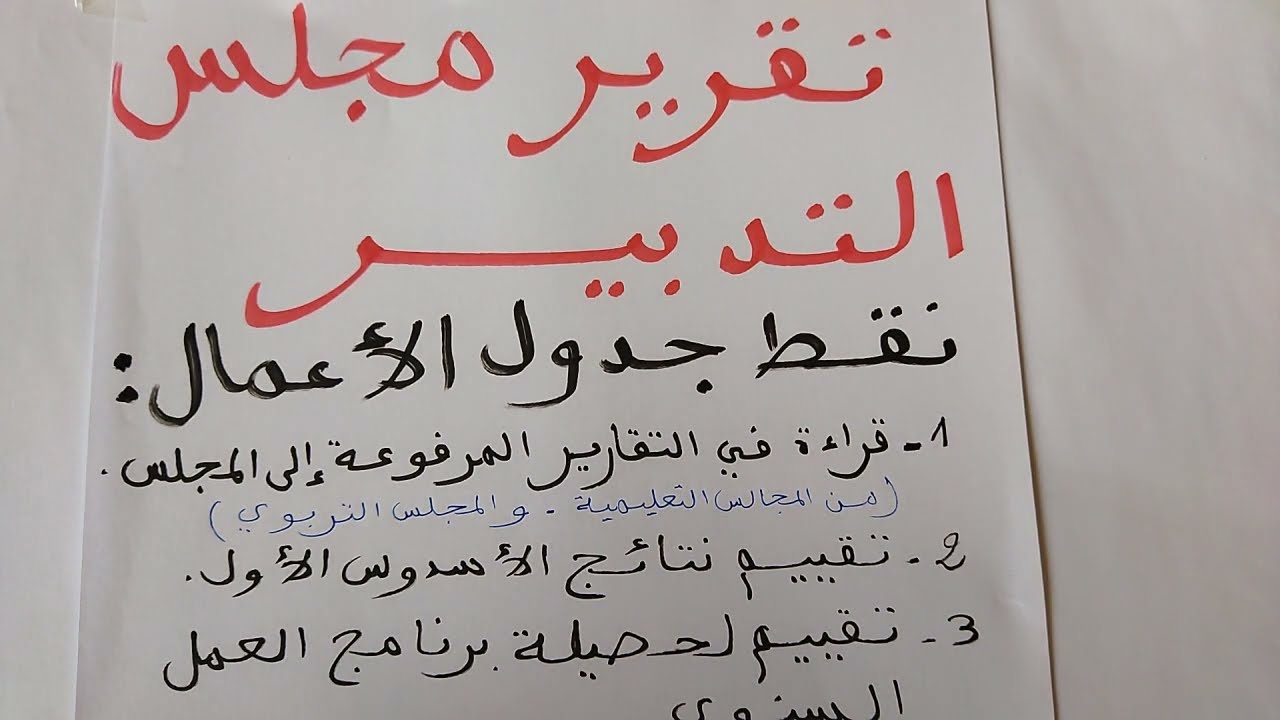 تقرير مجلس
التدبيـــر
نقط جدول الأعمال:
1- قراءة في التقارير المرفوعة إلى المجلس.
(من المجالس التعليمية - والمجلس التربوي)
2- تقييم نتائج الأسدوس الأول.
3- تقييم لحصيلة برنامج العمل
السنوي